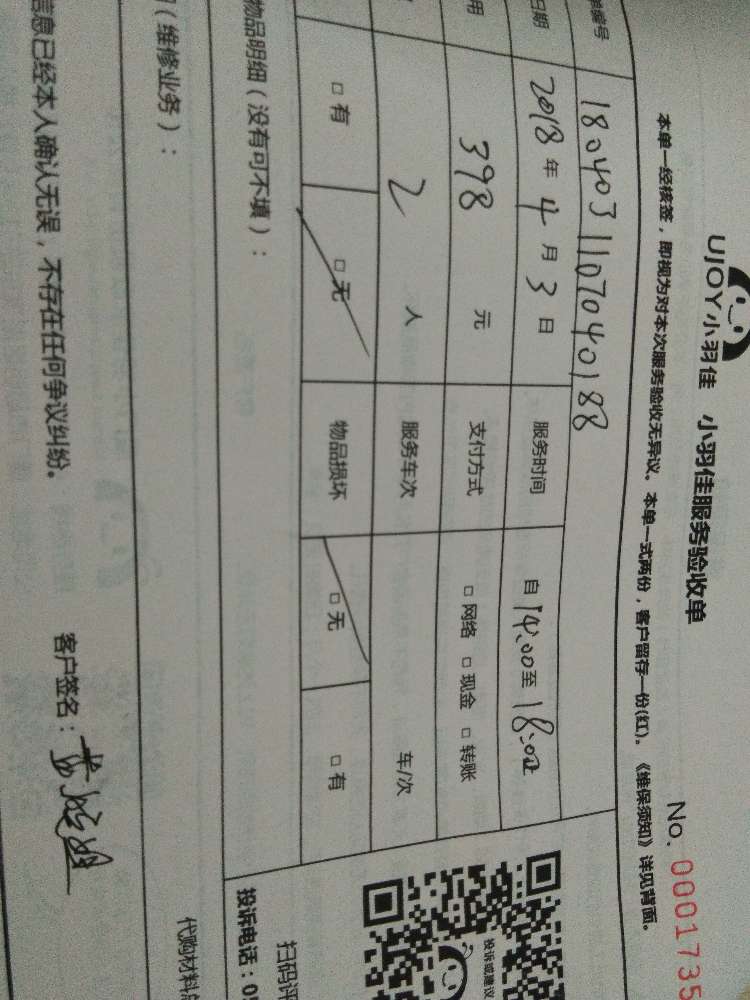 UJOY小羽佳 小羽佳服务验收单
No. 0001735
本单一经核签，即视为对本次服务验收无异议。本单一式两份，客户留存一份(红)。《维保须知》详见背面。
编号 1804031107040188
日期 2018年4月3日 服务时间 自14:00至18:00
用 398元 支付方式 □网络 □现金 □转账
2人 服务车次 车/次
□有 □无 物品损坏 □无 □有
投诉或建议
扫码评
物品明细（没有可不填）：
投诉电话：05
（维修业务）：
代购材料
信息已经本人确认无误，不存在任何争议纠纷。
客户签名：